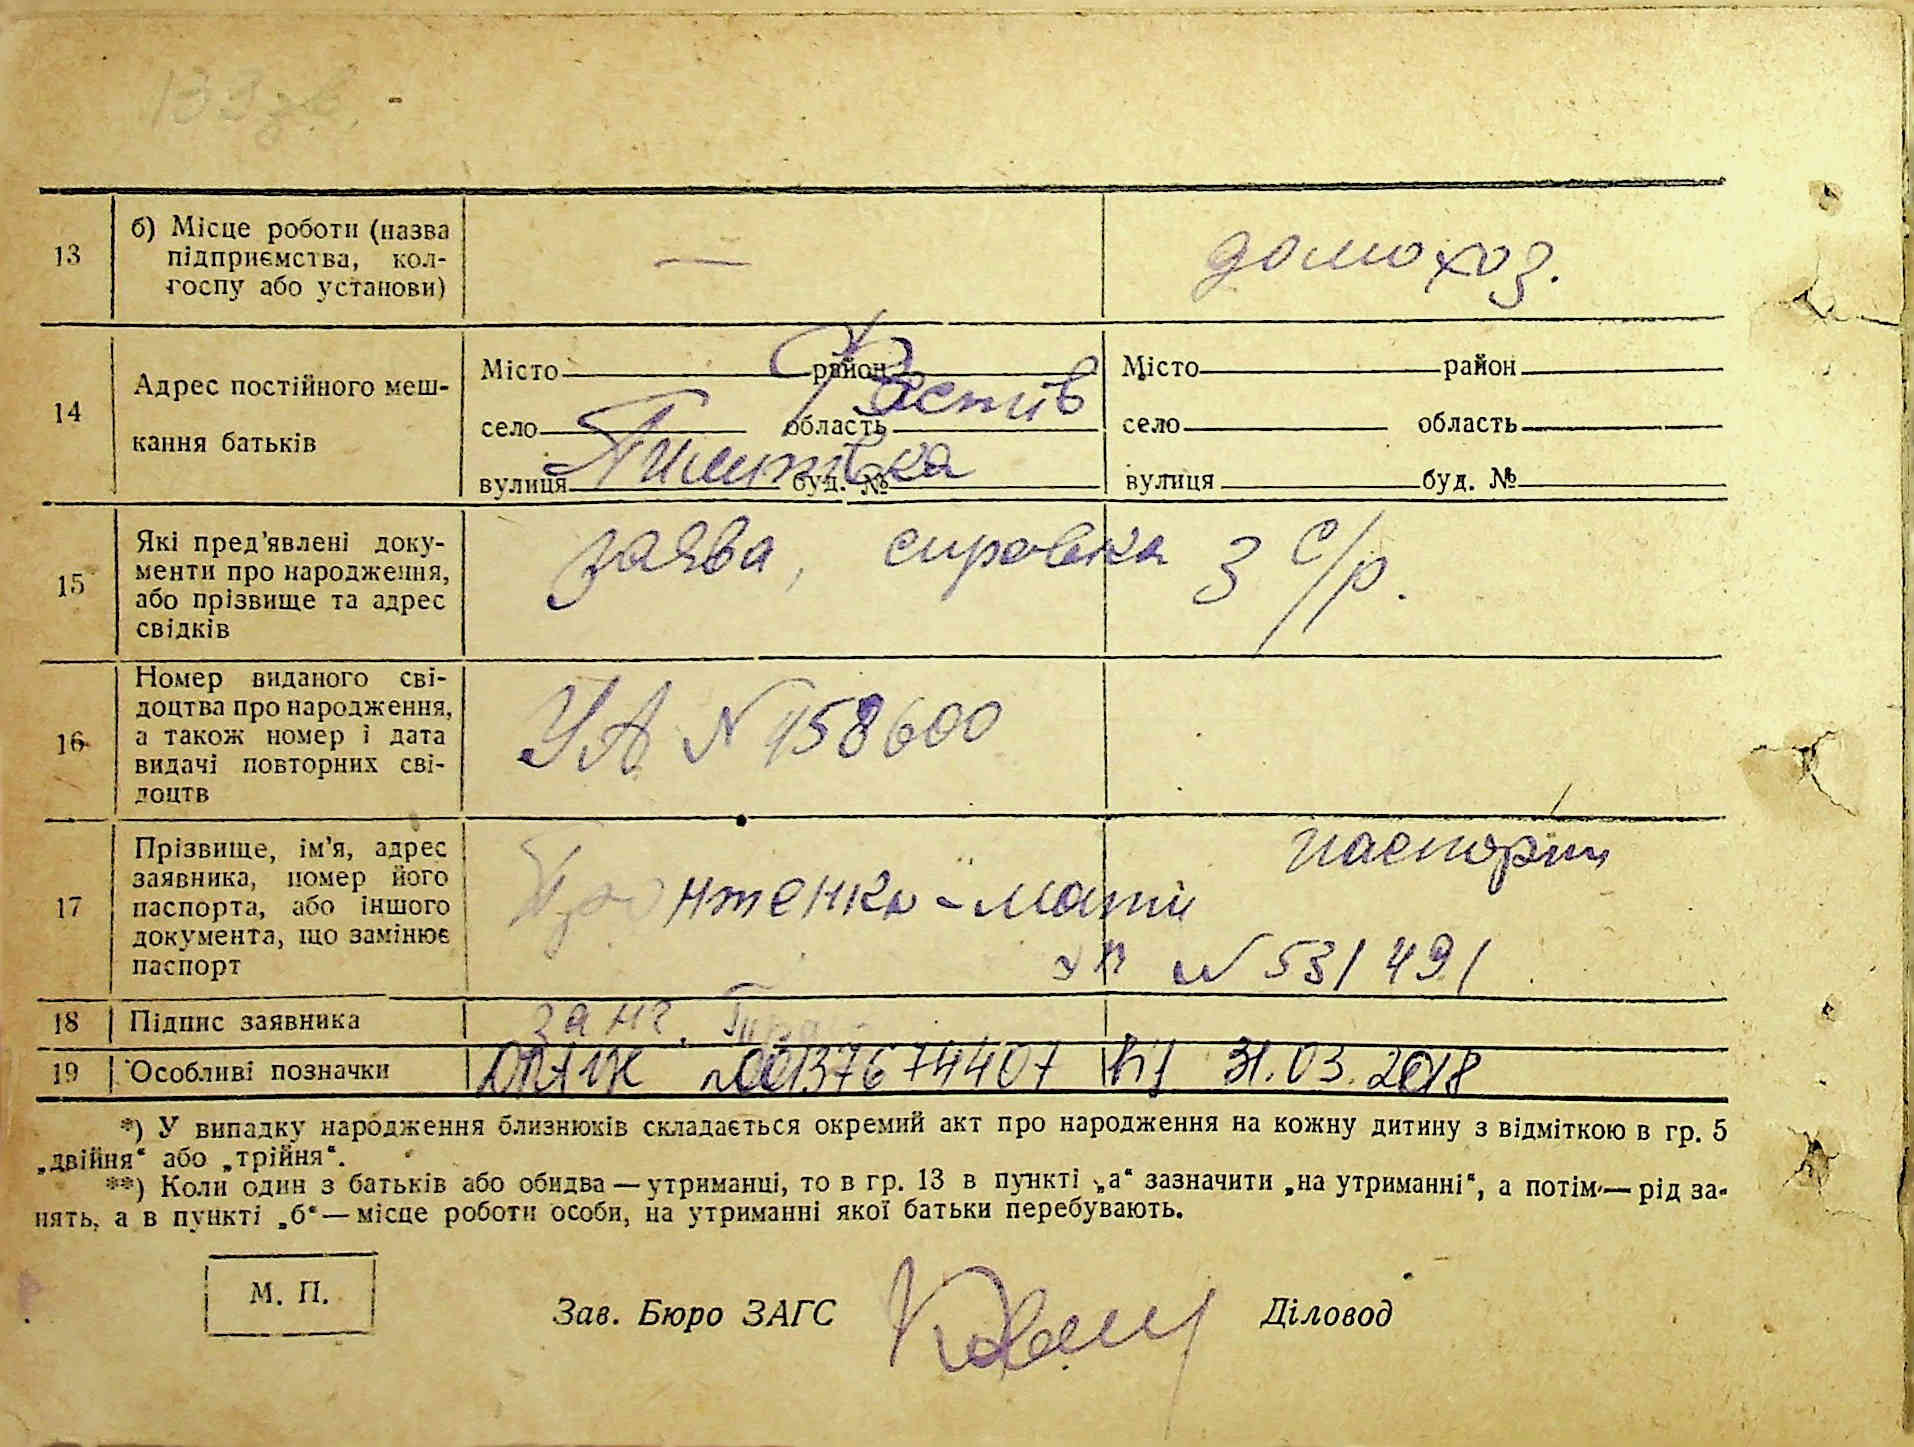 133 зв.
13
б) Місце роботи (назва
підприємства, кол-
госпу або установи)
—
домохоз.
14
Адрес постійного меш-
кання батьків
Місто район
село область
вулиця буд. №
Фастів
Пилипівка
Місто район
село область
вулиця буд. №
15
Які пред'явлені доку-
менти про народження,
або прізвище та адрес
свідків
заява, справка з с/р.
16
Номер виданого сві-
доцтва про народження,
а також номер і дата
видачі повторних сві-
доцтв
УА N 158600
17
Прізвище, ім'я, адрес
заявника, номер його
паспорта, або іншого
документа, що замінює
паспорт
- мати
паспорт
N 531491
18
Підпис заявника
19
Особливі позначки
№00137674407 31.03.2018
*) У випадку народження близнюків складається окремий акт про народження на кожну дитину з відміткою в гр. 5
„двійня“ або „трійня“.
**) Коли один з батьків або обидва — утриманці, то в гр. 13 в пункті „а“ зазначити „на утриманні“, а потім — рід за-
нять, а в пункті „б“ — місце роботи особи, на утриманні якої батьки перебувають.
М. П.
Зав. Бюро ЗАГС
Діловод